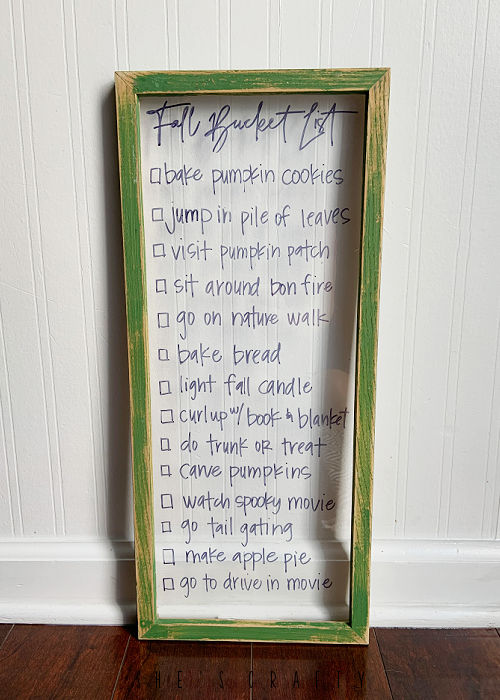 Fall Bucket List
bake pumpkin cookies
jump in pile of leaves
visit pumpkin patch
sit around bon fire
go on nature walk
bake bread
light fall candle
curl up w/ book & blanket
do trunk or treat
carve pumpkins
watch spooky movie
go tail gating
make apple pie
go to drive in movie
SHE'S CRAFTY